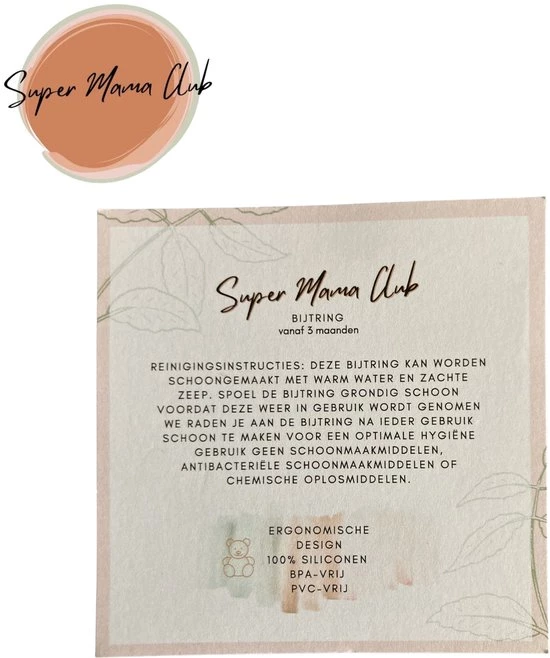 Super Mama Club
Super Mama Club
BIJTRING
vanaf 3 maanden
REINIGINGSINSTRUCTIES: DEZE BIJTRING KAN WORDEN
SCHOONGEMAAKT MET WARM WATER EN ZACHTE
ZEEP. SPOEL DE BIJTRING GRONDIG SCHOON
VOORDAT DEZE WEER IN GEBRUIK WORDT GENOMEN
WE RADEN JE AAN DE BIJTRING NA IEDER GEBRUIK
SCHOON TE MAKEN VOOR EEN OPTIMALE HYGIËNE
GEBRUIK GEEN SCHOONMAAKMIDDELEN,
ANTIBACTERIËLE SCHOONMAAKMIDDELEN OF
CHEMISCHE OPLOSMIDDELEN.
ERGONOMISCHE
DESIGN
100% SILICONEN
BPA-VRIJ
PVC-VRIJ